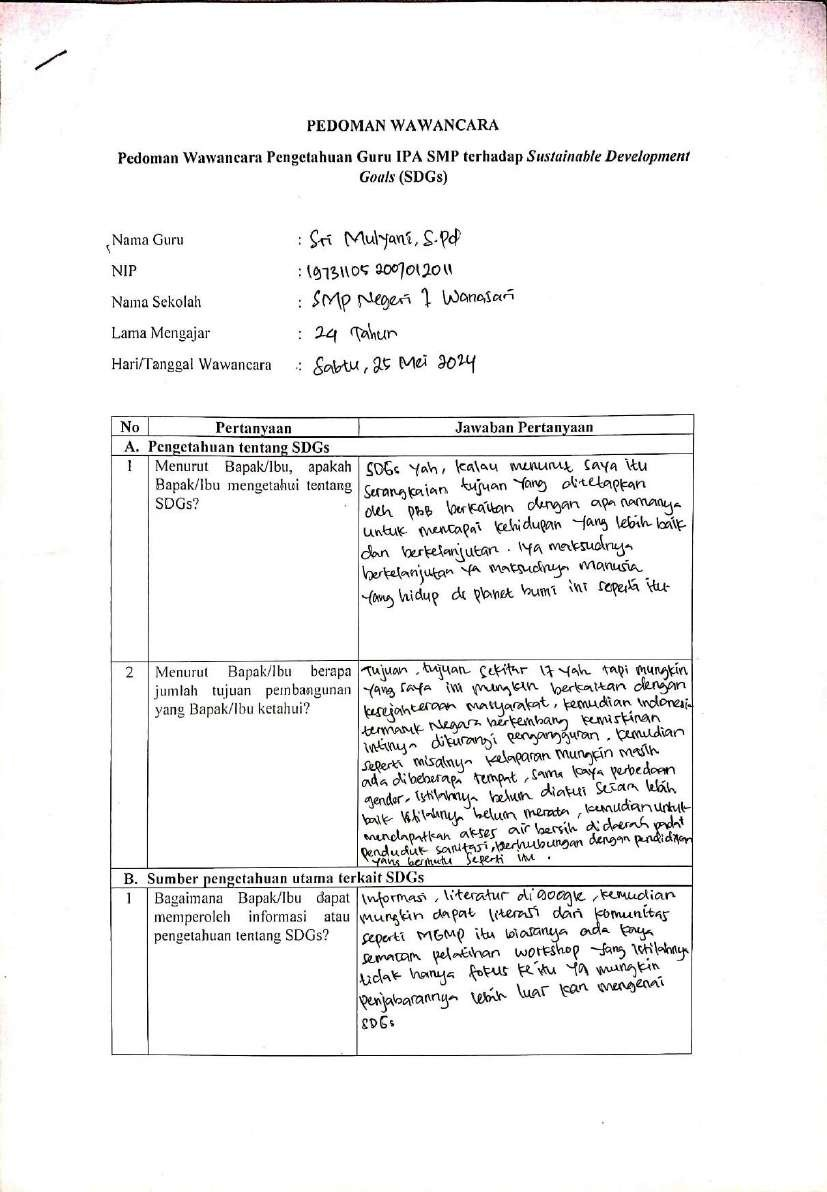 PEDOMAN WAWANCARA
Pedoman Wawancara Pengetahuan Guru IPA SMP terhadap Sustainable Development
Goals (SDGs)
Nama Guru : Sri Mulyani, S.Pd
NIP : 19731105 200701 2011
Nama Sekolah : SMP Negeri 1 Wanasari
Lama Mengajar : 24 Tahun
Hari/Tanggal Wawancara : Sabtu, 25 Mei 2024
No Pertanyaan Jawaban Pertanyaan
A. Pengetahuan tentang SDGs
1 Menurut Bapak/Ibu, apakah
Bapak/Ibu mengetahui tentang
SDGs?
SDGs yah, kalau menurut saya itu
serangkaian tujuan yang ditetapkan
oleh PBB berkaitan dengan apa namanya
untuk mencapai kehidupan yang lebih baik
dan berkelanjutan. Iya maksudnya
berkelanjutan ya maksudnya manusia
yang hidup di planet bumi ini seperti itu
2 Menurut Bapak/Ibu berapa
jumlah tujuan pembangunan
yang Bapak/Ibu ketahui?
Tujuan, tujuan sekitar 17 yah tapi mungkin
yang saya ini mungkin berkaitan dengan
kesejahteraan masyarakat, kemudian Indonesia
termasuk Negara berkembang kemiskinan
intinya dikurangi pengangguran, kemudian
seperti misalnya kelaparan mungkin masih
ada dibeberapa tempat, sama kaya perbedaan
gender, istilahnya belum diakui secara lebih
baik istilahnya belum merata, kemudian untuk
mendapatkan akses air bersih di daerah padat
penduduk sanitasi, berhubungan dengan pendidikan
yang bermutu seperti itu.
B. Sumber pengetahuan utama terkait SDGs
1 Bagaimana Bapak/Ibu dapat
memperoleh informasi atau
pengetahuan tentang SDGs?
Informasi, literatur di Google, kemudian
mungkin dapat literasi dari komunitas
seperti MGMP itu biasanya ada kaya
semacam pelatihan workshop yang istilahnya
tidak hanya fokus ke itu ya mungkin
penjabarannya lebih luar kan mengenai
SDGs